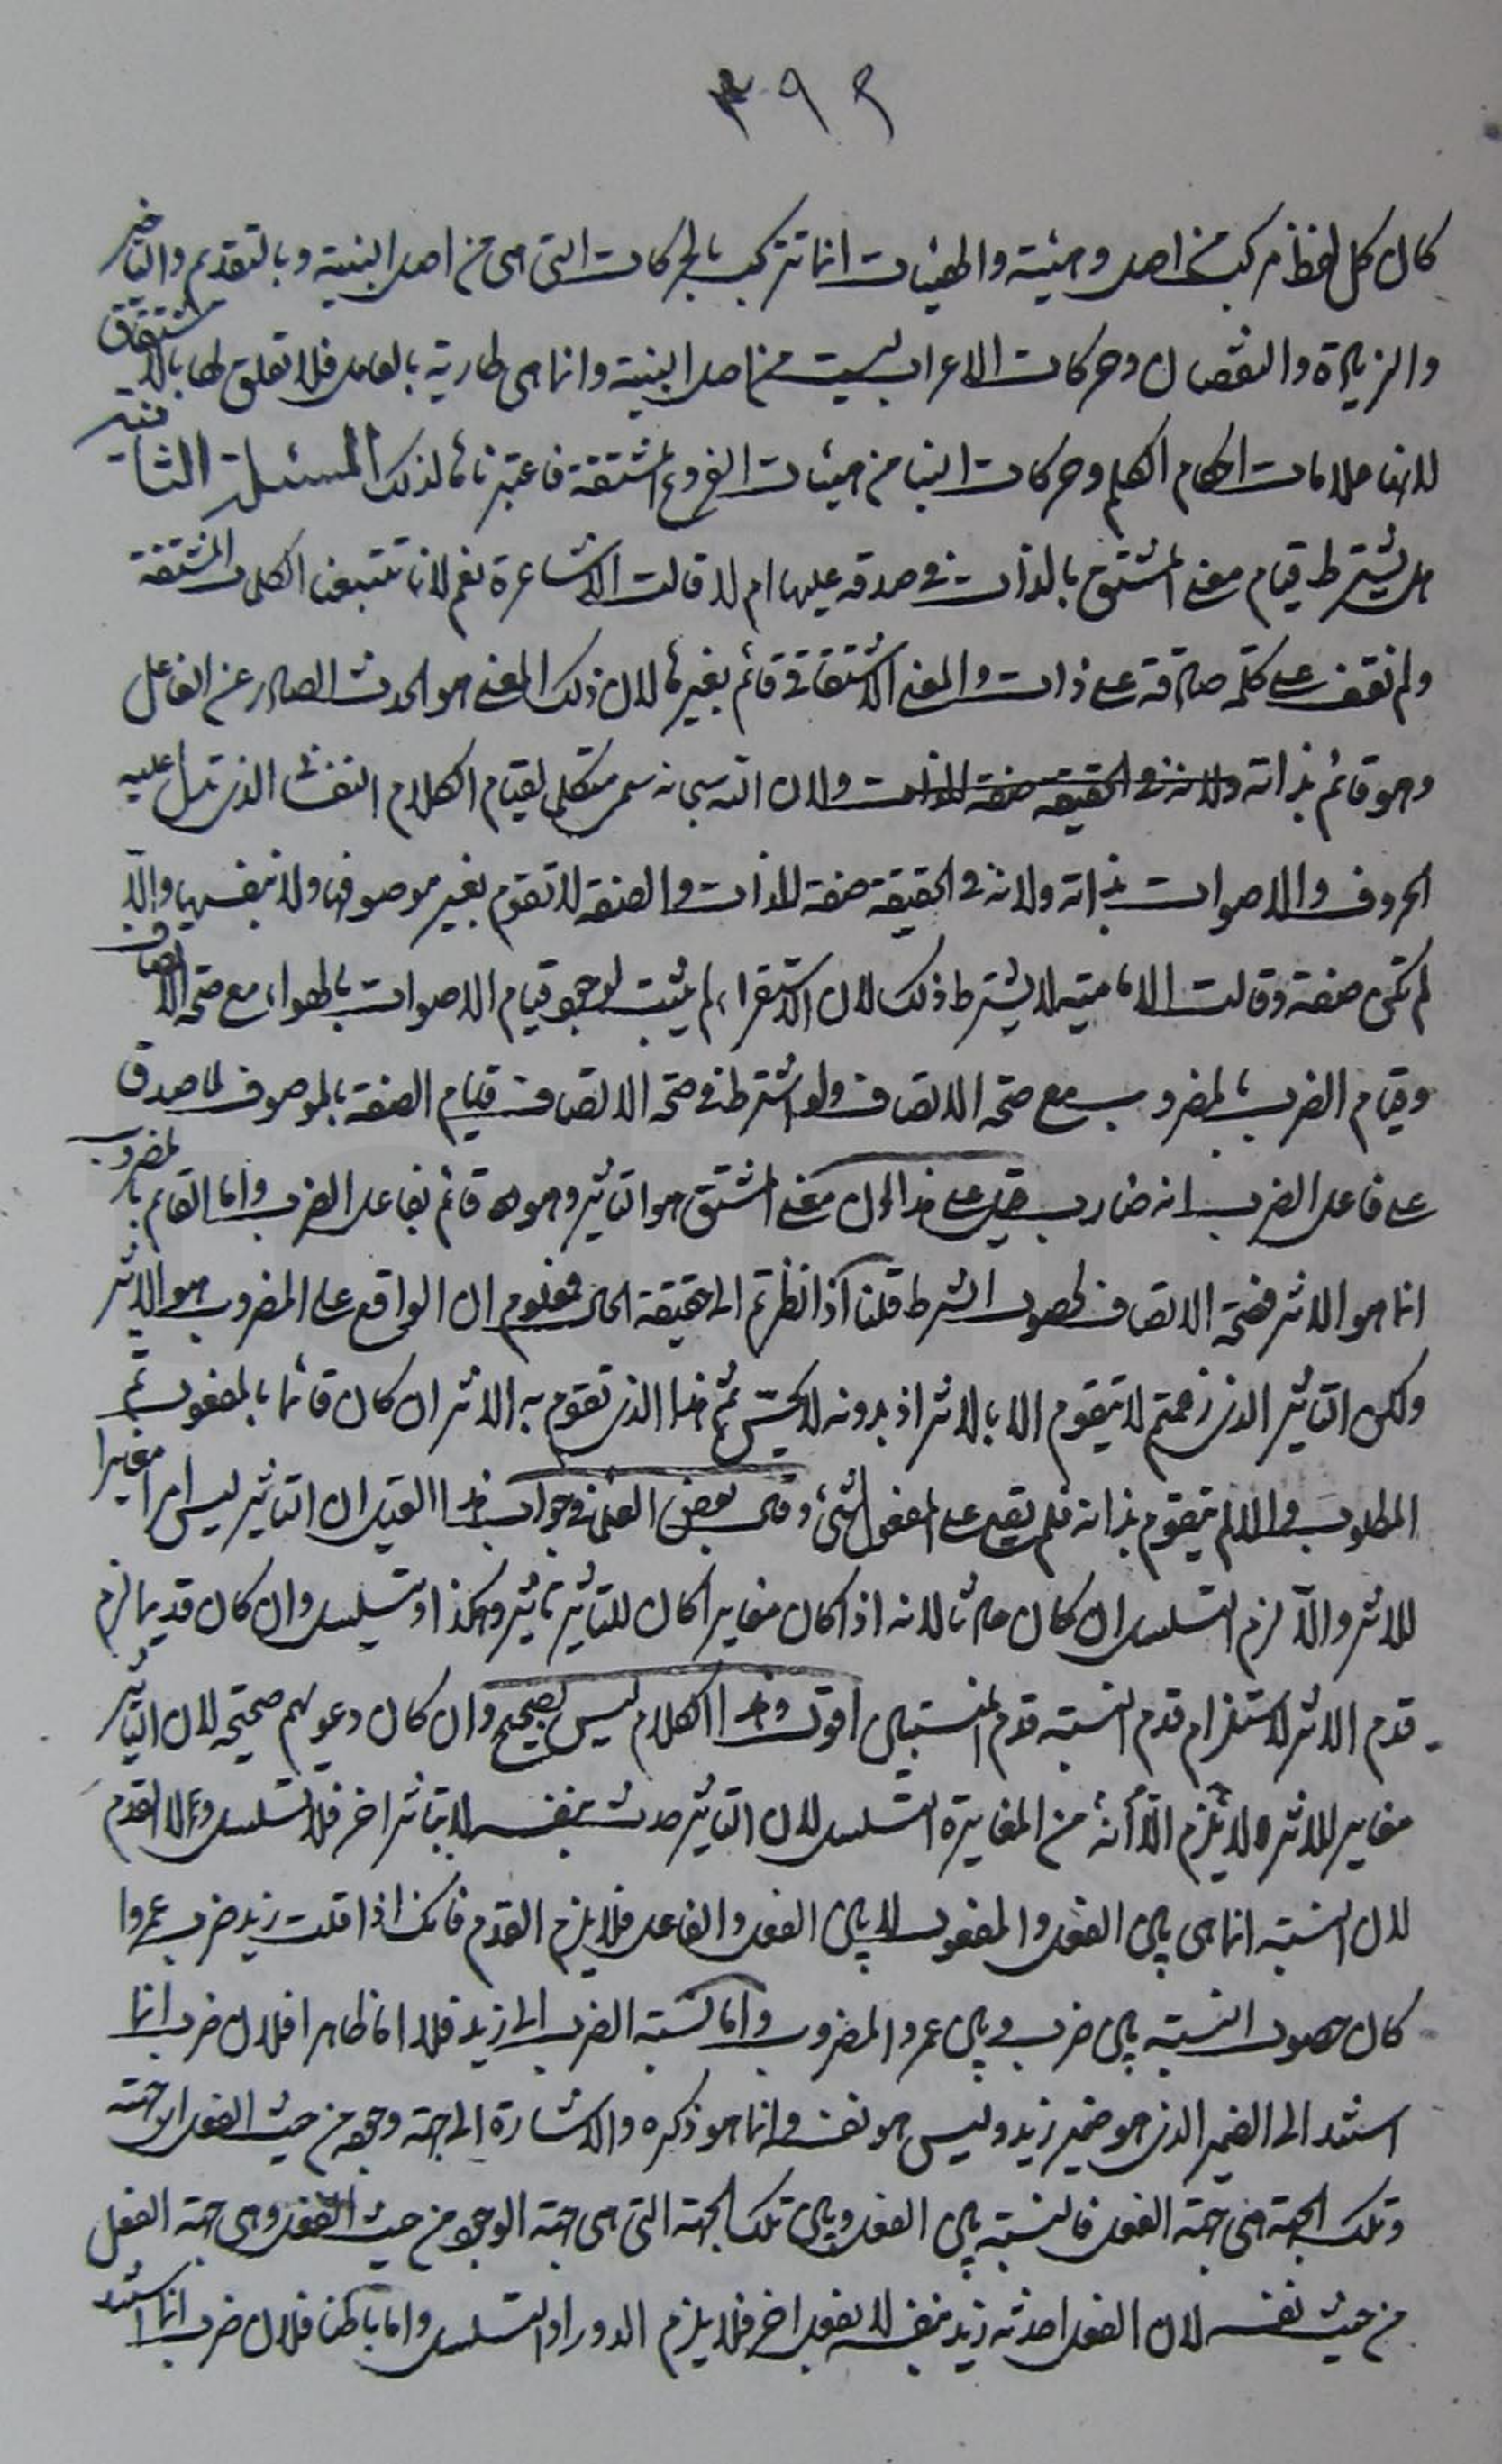 ٣٩٢
كان كل لفظ مركب من اصل وهيئة والهيئات انما تتركب بالحركات التى هى من اصل البنية وبالتقديم والتاخير
والزيادة والنقصان وحركات الاعراب ليست من اصل البنية وانما هى طارية بالعامل فلا تعلق لها بالاشتقاق
لانها علامات احكام الكلم وحركات البنا من هيئات الفروع المشتقة فاعتبرناها لذلك المسئلة الثانية
هل يشترط قيام معنى المشتق بالذات فى صدقه عليها ام لا قالت الاشاعرة نعم لانا تتبعنا الكلمات المشتقة
ولم نقف على كلمة صادقة على ذات والمعنى الاشتقاقى قائم بغيرها لان ذلك المعنى هو الحدث الصادر عن الفاعل
وهو قائم بذاته ولانه فى الحقيقة صفة للذات ولان الله سبحانه سمى متكلما لقيام الكلام النفسى الذى تدل عليه
الحروف والاصوات بذاته ولانه فى الحقيقة صفة للذات والصفة لا تقوم بغير موصوفها ولا بنفسها والا
لم تكن صفة وقالت الامامية لا يشترط ذلك لان الاستقراء لم يثبت لوجود قيام الاصوات بالهواء مع صحة الاتصاف
وقيام الضرب بالمضروب مع صحة الاتصاف ولو اشترط فى صحة الاتصاف قيام الصفة بالموصوف لما صدق
على فاعل الضرب انه ضارب قيل على هذا ان معنى المشتق هو التاثير وهو قائم بفاعل الضرب واما القائم بالمضروب
انما هو الاثر فصحة الاتصاف لحصول الشرط قلنا اذا نظرتم الى حقيقة الحال فمعلوم ان الواقع على المضروب هو الاثر
ولكن التاثير الذى زعمتم لا يتقوم الا بالاثر اذ بدونه لا يتحقق ثم هذا الذى تقوم به الاثر ان كان قائما بالمفعول تم
المطلوب والا لم يتقوم بذاته فلم يقع على المفعول شئ وقال بعض العلماء فى جواب هذا القيل ان التاثير ليس امرا مغايرا
للاثر والا لزم التسلسل ان كان حادثا لانه اذا كان مغايرا كان للتاثير تاثير وهكذا ويتسلسل وان كان قديما لزم
قدم الاثر لاستلزام قدم النسبة قدم المنتسبين اقول وهذا الكلام ليس بصحيح وان كان دعويهم صحيحة لان التاثير
مغاير للاثر ولا يلزم من المغايرة التسلسل لان التاثير حدث بنفسه لا بتاثير اخر فلا تسلسل ولا القدم
لان النسبة انما هى بين الفعل والمفعول لا بين الفعل والفاعل فلا يلزم القدم فانك اذا قلت زيد ضرب عمروا
كان حصول النسبة بين ضرب وبين عمرو المضروب واما نسبة الضرب الى زيد فلا اما ظاهرا فلان ضرب انما
استند الى الضمير الذى هو ضمير زيد وليس هو نفسه وانما هو ذكره والاشارة الى جهة وجوده من حيث الفعل اى جهته
وتلك الجهة هى جهة الفعل فالنسبة بين الفعل وبين تلك الجهة التى هى جهة الوجود من حيث الفعل وهى جهة الفعل
من حيث نفسه لان الفعل احدثه زيد بنفسه لا بفعل اخر فلا يلزم الدور او التسلسل واما باطنا فلان ضرب انما استند